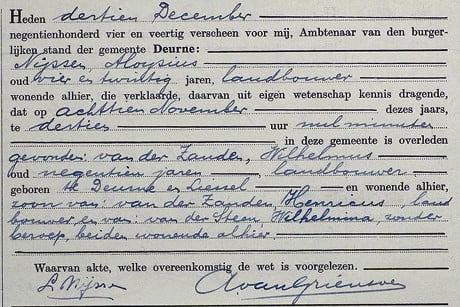 Heden dertien December
negentienhonderd vier en veertig verscheen voor mij, Ambtenaar van den burger-
lijken stand der gemeente Deurne:
Nijssen, Aloysius
oud vier en twintig jaren, landbouwer
wonende alhier, die verklaarde, daarvan uit eigen wetenschap kennis dragende,
dat op achttien November dezes jaars,
te dertien uur nul minuten
in deze gemeente is overleden
gevonden: van der Zanden, Wilhelmus
oud negentien jaren, landbouwer
geboren te Deurne en Liessel en wonende alhier,
zoon van: van der Zanden, Henricus, land
bouwer en van: van der Steen Wilhelmina, zonder
beroep, beiden wonende alhier.
Waarvan akte, welke overeenkomstig de wet is voorgelezen.